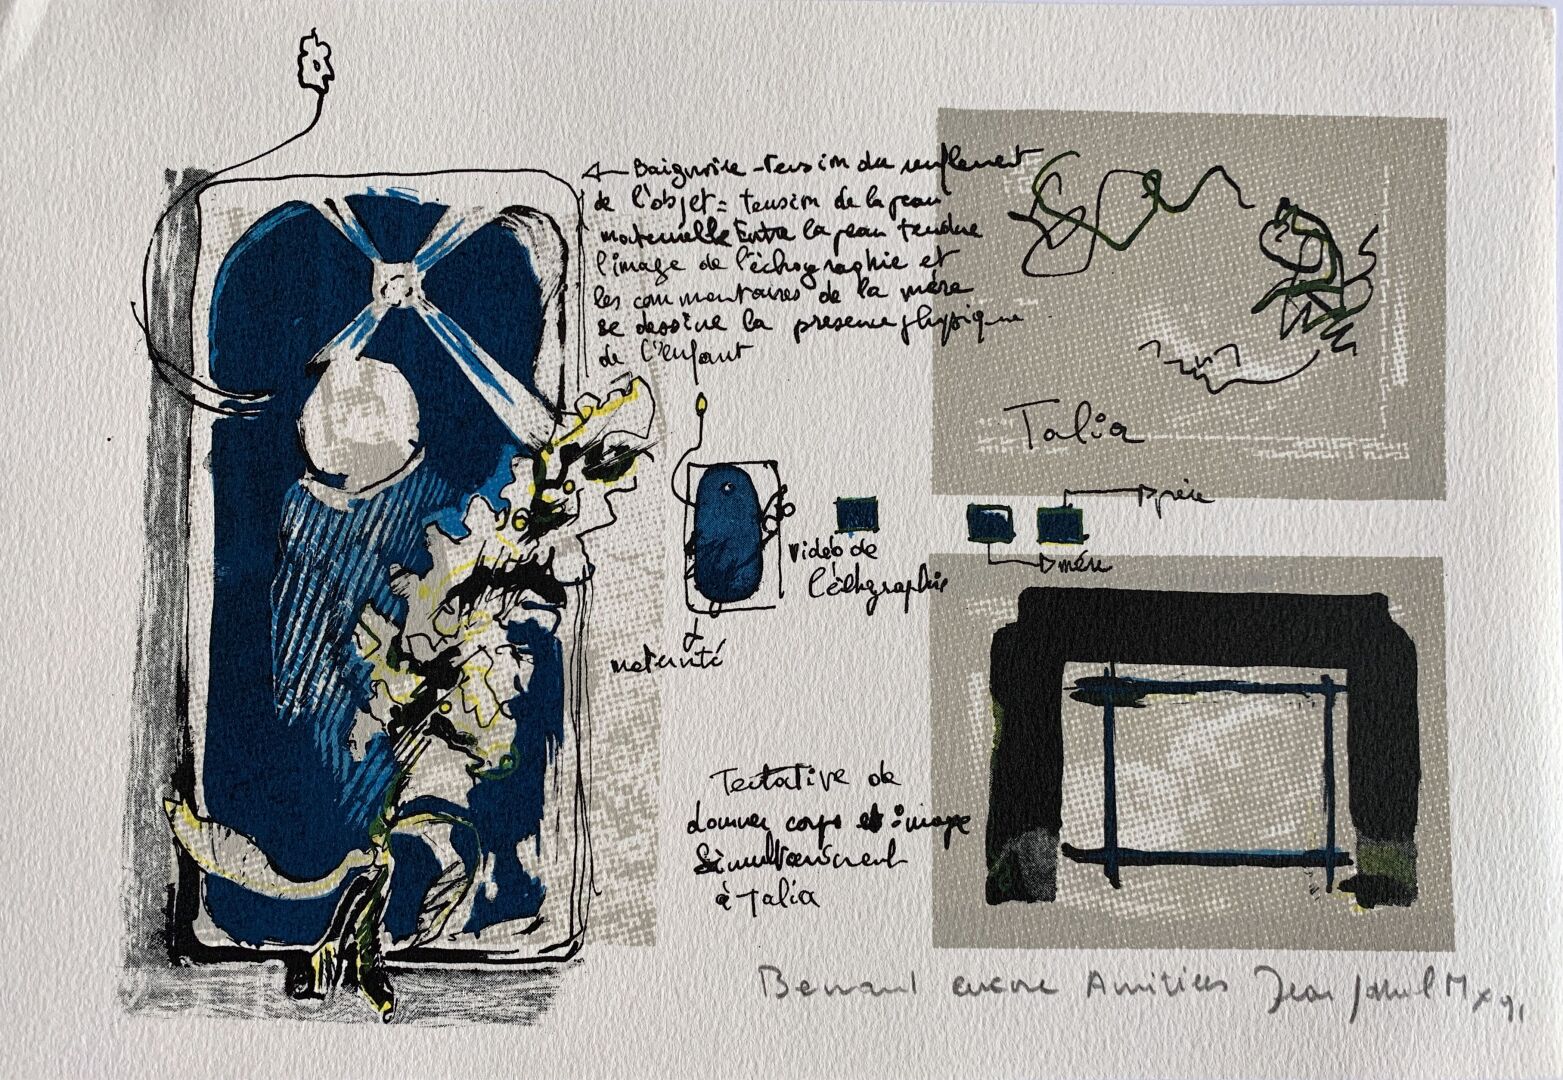 Baignoire - tension du renflement
de l'objet = tension de la peau
maternelle Entre la peau tendue
l'image de l'échographie et
les commentaires de la mère
se dessine la presence physique
de l'enfant
Talia
père
mère
vidéo de
l'échographie
maternité
Tentative de
donner corps et image
simultanément
à Talia
encore Amitiées Jean Paul M x 91